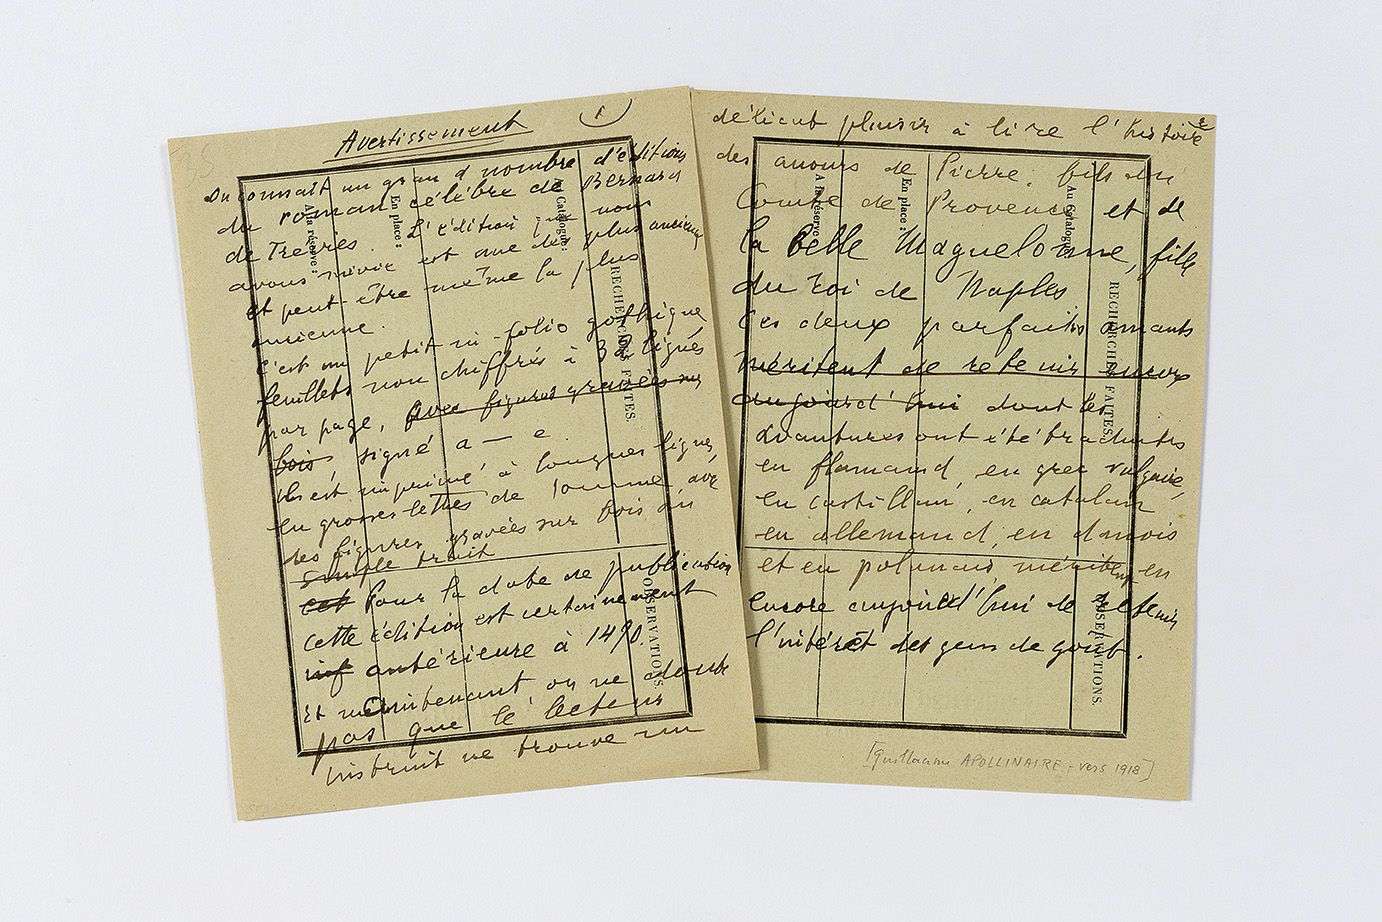 Avertissement
1
35
On connait un gran d nombre d'éditions
du roman célèbre de Bernard
de Treviés. L'édition que nous
avons suivie est une des plus anciennes
et peut-être même la plus
ancienne.
C'est un petit in-folio gothique
feuillets non chiffrés à 32 lignes
par page, avec figures gravées sur
bois signé a — e.
Il est imprimé à longues lignes,
en grosses lettres de somme, avec
des figures gravées sur bois au
simple trait
cet Pour la date de publication
cette édition est certainement
inf antérieure à 1490.
Et maintenant on ne doute
pas que le lecteur
instruit ne trouve un
À la réserve :
En place :
Au Catalogue :
RECHERCHES FAITES.
OBSERVATIONS.
2
délicat plaisir à lire l'histoire
des amours de Pierre, fils du
Comte de Provence et de
la belle Maguelonne, fille
du roi de Naples
Ces deux parfaits amants
méritent de retenir encore
aujourd'hui dont les
avantures ont été traduites
en flamand, en grec vulgaire,
en castillan, en catalan
en allemand, en danois
et en polonais méritent en
encore aujourd'hui de retenir
l'intérêt des gens de goût.
À la réserve :
En place :
Au Catalogue :
RECHERCHES FAITES.
OBSERVATIONS.
[Guillaume APOLLINAIRE - vers 1918]